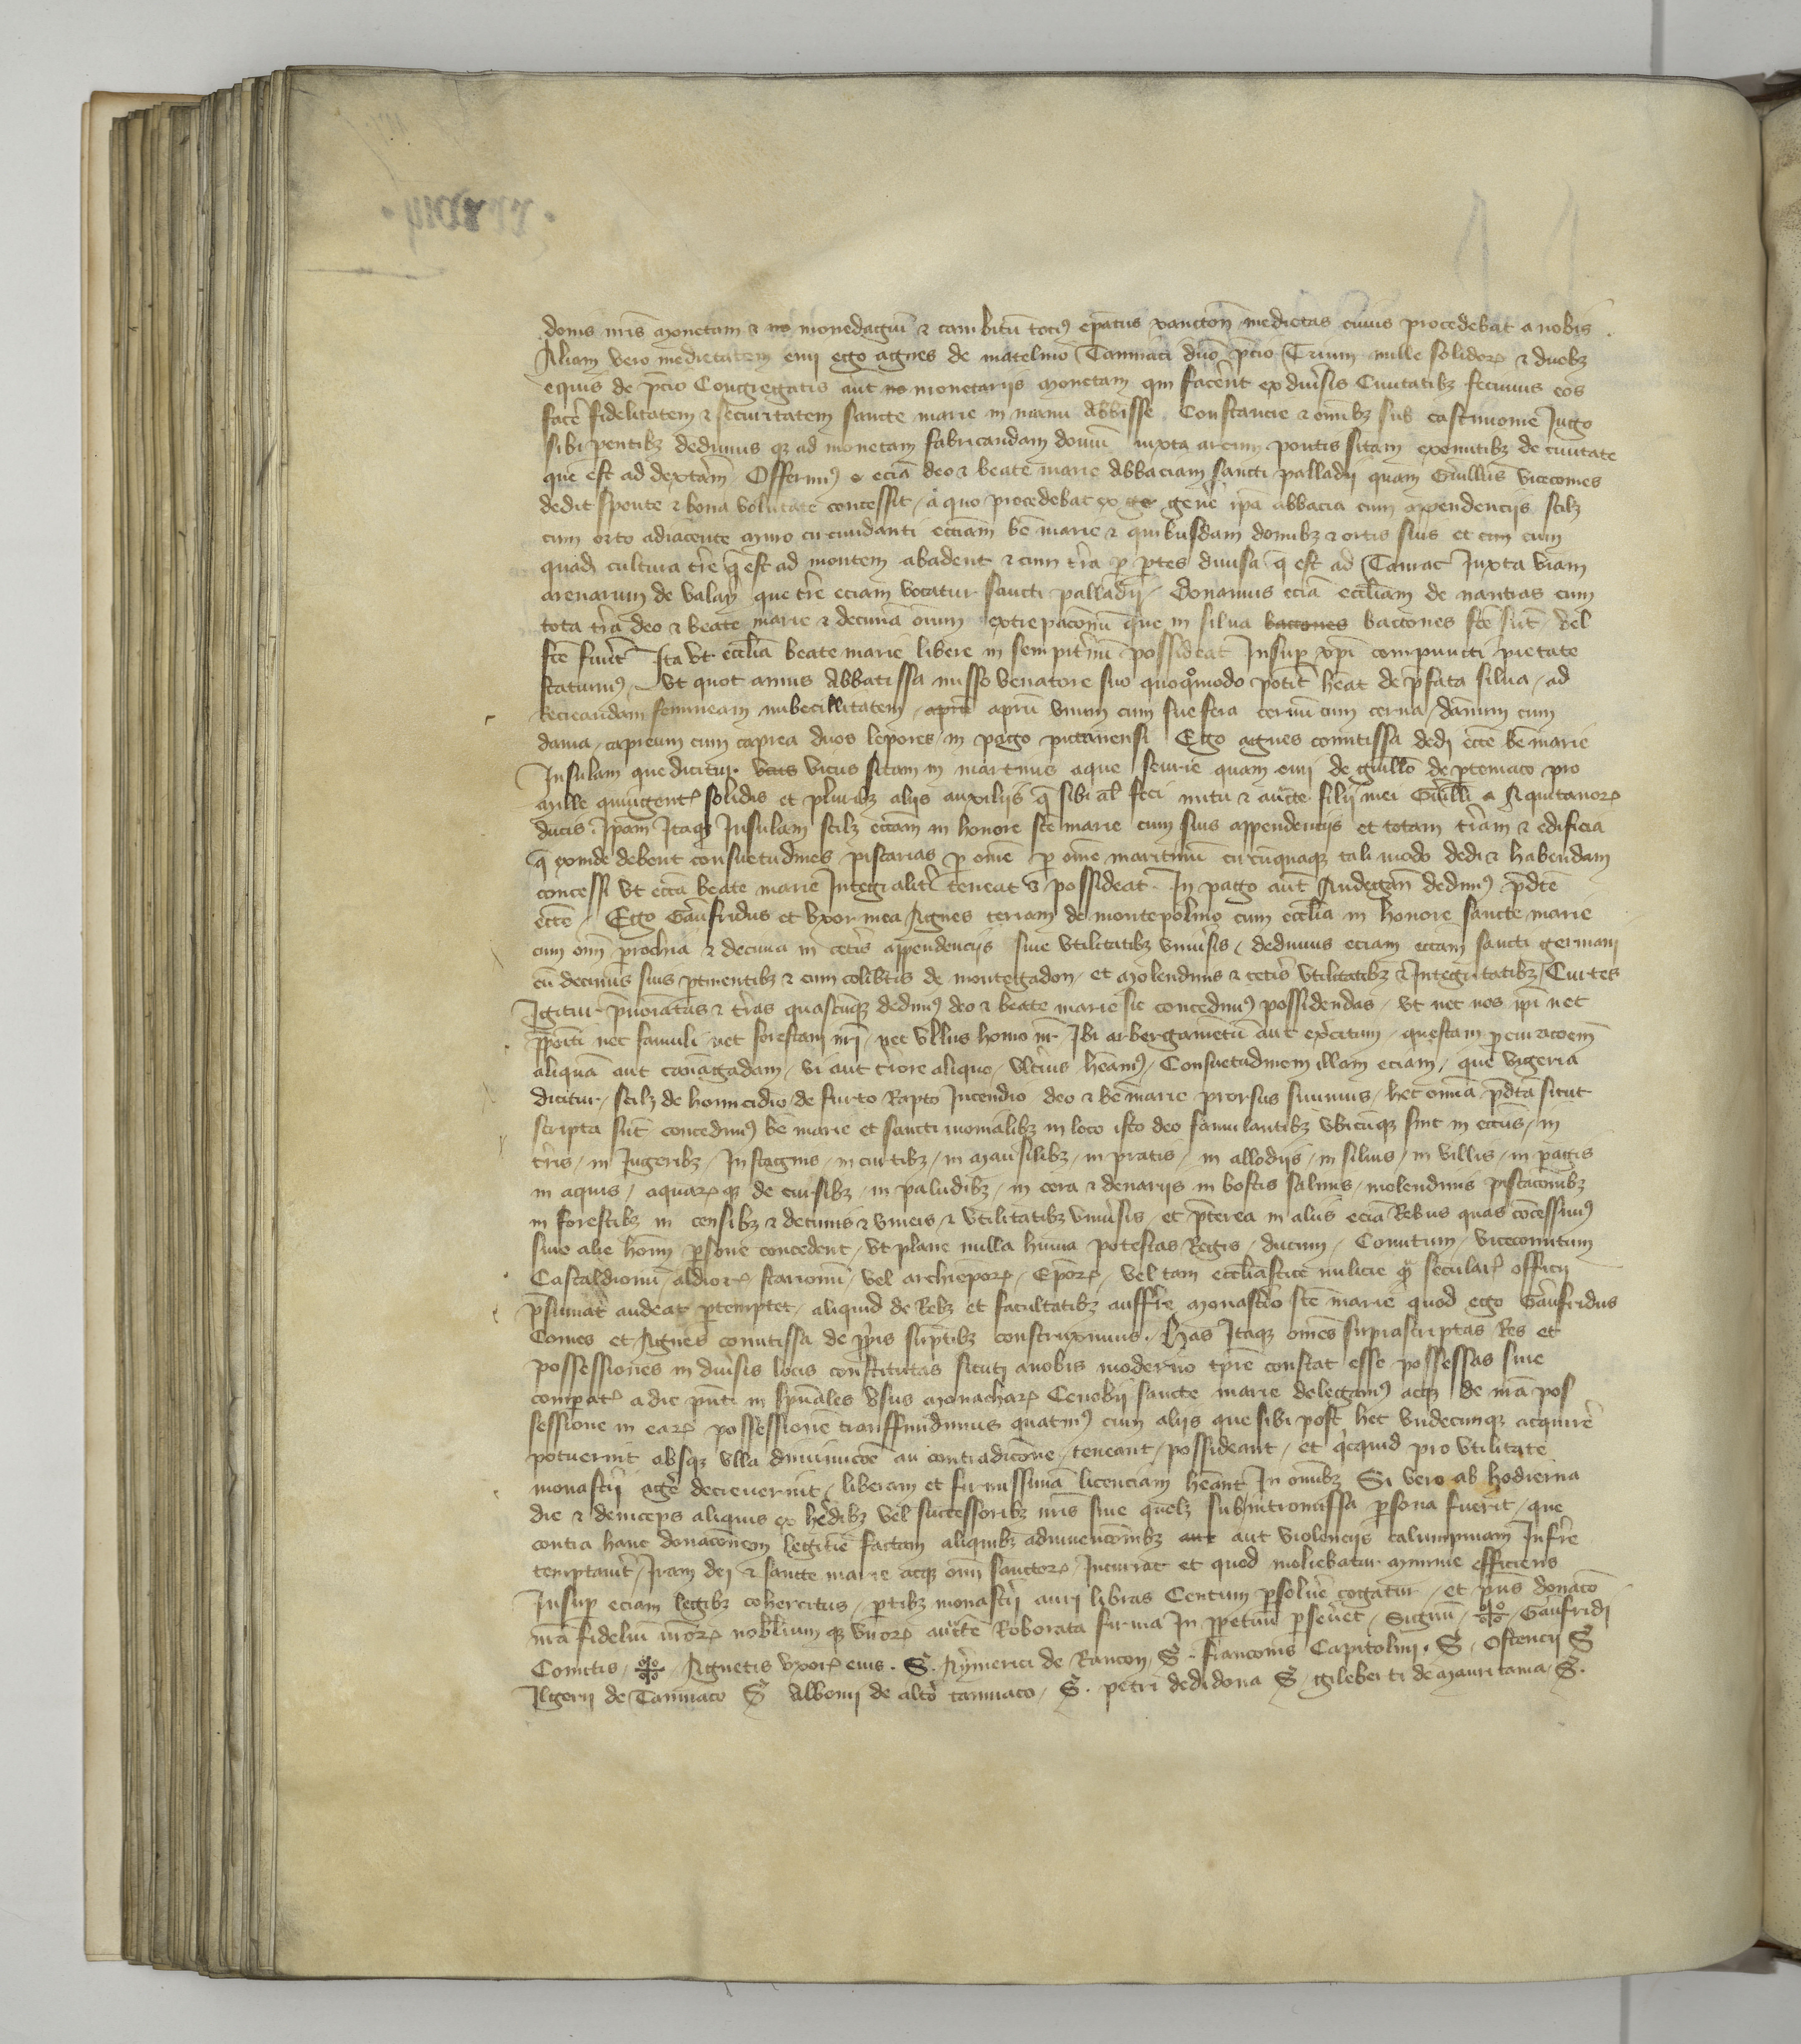 donis nr̄is monetam & monedagiū & cambitū toci9 ep̄atus xancton̄ medietas cuius procedebat a nobis.
Aliam vero medietatem emj ego agnes de matelmo Tanniaci duō p̄cio Trium mille solidor̄ & duobz
equis de p̄cio Congregatis aut̄ monetarijs monetam qui facerēt ex diu̓sis Ciuitatibz fecimus eos
facē fidelitatem & securitatem sancte marie in manu Abb̄isse Constancie & om̄ibz sub castimonie Jugo
sibi pentibz dedimus qz ad monetam fabricandam domū iuxta arcum pontis sitam exeuntibz de ciuitate
que est ad dext̓am Offerim9 eciā deo & beate marie Abbaciam sancti palladij quam Guill̄us vicecomes
dedit sponte & bona volūtate concessit / a quo procedebat ex gen̓e ip̄a abbacia cum appendencijs scilz
cum orto adiacente muro circumdanti ecciam be marie & quibusdam domibz & ortis suis et cum
quadā cultura tr̄e q̄ est ad montem abadent & cum tr̄a p p̄tes diuisa q̄ est ad Taurac Juxta viam
arenarum de valarj que tr̄e eciam vocatur sancti palladij / Donamus eciā eccl̄iam de nancras cum
tota tr̄a deo & beate marie & decimā om̄ium extirpaconū que in silua bacones bacones sc̄e sūt vel
fc̄e fuer̄t Ita vt eccl̄iā beate marie libere in sempit̓nū possideat Insup xp̄i compuncti pietate
statuim9 / vt quot annis Abbatissa misso venatore suo quoqo̓modo potit̄ heāt de p̄fata silua / ad
Recreandam femineam imbecillitatem / aprū aprū vnum cum sue fera ceruū cum cerua / damum cum
dama / capreum cum caprea duos lepores / in pago pictauensi Ego agnes comitissa dedj ecc̄e be marie
Insulam que dicitur vicus vicus sitam in maritinis aque seurie quam emj de guill̄o de p̄teniaco pro
mille quingent̄ solidis et pluribz alijs auxilijs q̄ sibi al̄ feci nutu & auct̄e filij mei Guill̄i Aquitanor̄
ducis Ip̄am Itaqz Insulam scilz ecc̄am in honore sc̄e marie cum suis appendencijs et totam tr̄am & edificia
q̄ exinde debent consuetudines piscarias p om̄e p om̄e maritimū circūquaqz tali modo dedi & habendam
concessi vt ecc̄a beate marie Integralit̓ teneat & possideat. In pago aut̄ Andegan̄ dedim9 p̄dc̄e
ecc̄e / Ego Gaufridus et vxor mea Agnes terram de montepolino cum eccl̄ia in honore sancte marie
cum om̄i parochia & decima in cet̓is appendencijs siue vtilitatibz vniu̓sis / dedimus eciam ecc̄am sancti germani
cū decimis suis p̄tinentibz & cum colib̓tis de montegadon / et molendinis & cet̓is vtilitatibz & Integritatibz / Curtes
Igitur p̄noiatas & tr̄as quascūqz dedim9 deo & beate marie sic concedim9 possidendas / vt nec nos ip̄i nec
p̄positi nec famuli nec forestarij nr̄i / nec vllus homo nr̄ Ibi arbergametū aut exercitum / questam p̄curacoēm
aliquā aut cauagadam / vi aut t̓rore aliquo / vlt̓ius heām9 / Consuetudinem illam eciam / que vigeria
dicitur / scilz de homicidio / de furto Rapto Incendio deo & be marie prorsus sinimus / hec omīa p̄dc̄a sicut
scripta sūt concedim9 be marie et sanctimonialibz in loco isto deo famulantibz vbicūqz sint in ecc̄iis / in
tr̄is / in Jugeribz / In stagnis / in curtibz / in mansilibz / in pratis / in allodijs / in siluis / in villis / in pagis
in aquis / aquar̄ qz de cursibz / in paludibz / in cera & denarijs in bostis salinis / molendinis piscaconibz
in forestibz in censibz & decimis & vineis & vtilitatibz vniu̓sis / et p̄terea in alijs eciā Rebus quas cōcessim9
siue alie hoīm p̄sone concedent / vt plane nulla huīna potestas Regis / ducum / Comitum / vicecomitum
Castaldionū / aldior̄ / scarionū / vel archiep̄or̄ / Ep̄or̄ / vel tam eccl̄iastice milicie qm̄ secular̄ officij
p̄sumat audeat p̄temptet / aliquid de Rebz et facultatibz auffr̄e monast̓io sc̄e marie quod ego Gaufridus
Comes et Agnes comitissa de pp̄riis sūptibz construximus. Has Itaqz om̄es suprascriptas Res et
possessiones in diu̓sis locis constitutas sicutj a nobis moderno tp̄re constat esse possessas siue
comparat̄ a die p̄nti in sp̄uales vsus monachar̄ Cenobij sancte marie delegam9 atqz de nr̄a pos
sessione in ear̄ possessionē transfundimus quatin9 cum alijs que sibi post hec vndecunqz acquirē
potuerint absqz vlla diminucōe an contradicōne / teneant / possideant / et quicquid pro vtilitate
monast̓ij agē decreuerint / liberam et firmissimā licenciam heānt In om̄ibz Si vero ab hodierna
die & deinceps aliquis ex he̓dibz vel successoribz nr̄is siue quelz subintromissa p̄sona fuerit / que
contra hanc donacōnem legitīe factam aliquibz adinuencōnibz aut aut violencijs calumpniam Infr̄e
temptau̓it / Iram dej & sancte marie atqz om̄i sanctor̄ Incurrat et quod moliebatur minime efficiens
Insup eciam legibz cohercitus / p̄tibz monast̓ij auri libras Centum p̄solu̓e cogatur / et p̄ns donacō
nr̄a fideliū nr̄or̄ nobiliumqz viror̄ auct̄e Roborata firma In pp̄etuū p̄seu̓et / Signū / ※ / Gaufridj
Comitis / ※ / Agnetis vxor̄ eius. S. Aymerici de Rancon / S. franconis Capitolinj. S. Ostencij S
Ilgerij de Tanniaco S Alboinj de alto tanniaco / S. petri dedidona S / gileberti de mauritania / S.